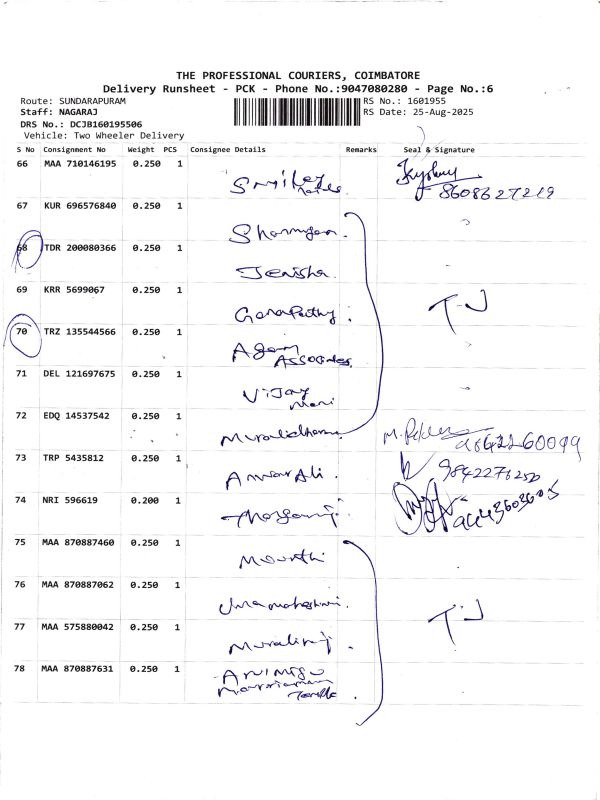 THE PROFESSIONAL COURIERS, COIMBATORE
Delivery Runsheet - PCK - Phone No.:9047080280 - Page No.:6
Route: SUNDARAPURAM
RS No.: 1601955
Staff: NAGARAJ
RS Date: 25-Aug-2025
DRS No.: DCJB160195506
Vehicle: Two Wheeler Delivery
S No Consignment No Weight PCS Consignee Details Remarks Seal & Signature
66 MAA 710146195 0.250 1
8608627219
67 KUR 696576840 0.250 1
68 TDR 200080366 0.250 1
Jenisha
69 KRR 5699067 0.250 1
Ganapathy T-J
70 TRZ 135544566 0.250 1
Associates
71 DEL 121697675 0.250 1
Vijay
Mani
72 EDQ 14537542 0.250 1
Muralidharan
73 TRP 5435812 0.250 1
Anwar Ali
74 NRI 596619 0.200 1
75 MAA 870887460 0.250 1
Moorthi
76 MAA 870887062 0.250 1
Uma maheshwari T-J
77 MAA 575880042 0.250 1
Muraliraj
78 MAA 870887631 0.250 1
Mariamman
Temple